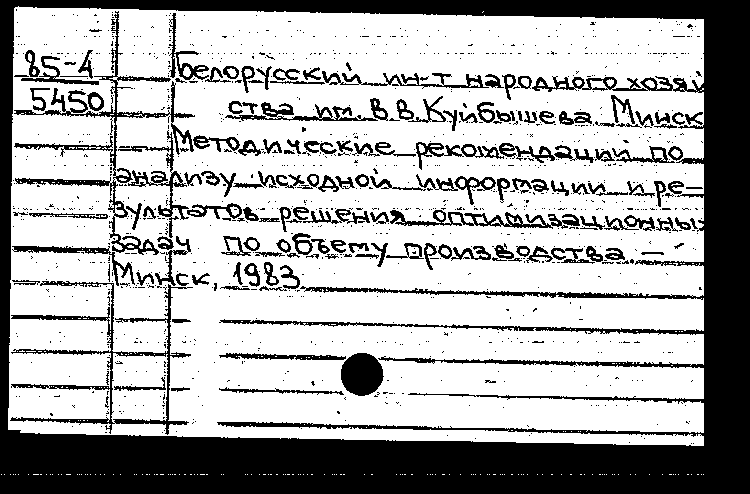 85-4
5450
Белорусский ин-т народного хозяй
ства им. В.В. Куйбышева. Минск
Методические рекомендации по
анализу исходной информации и ре-
зультатов решения оптимизационных
задач по объему производства —
Минск, 1983